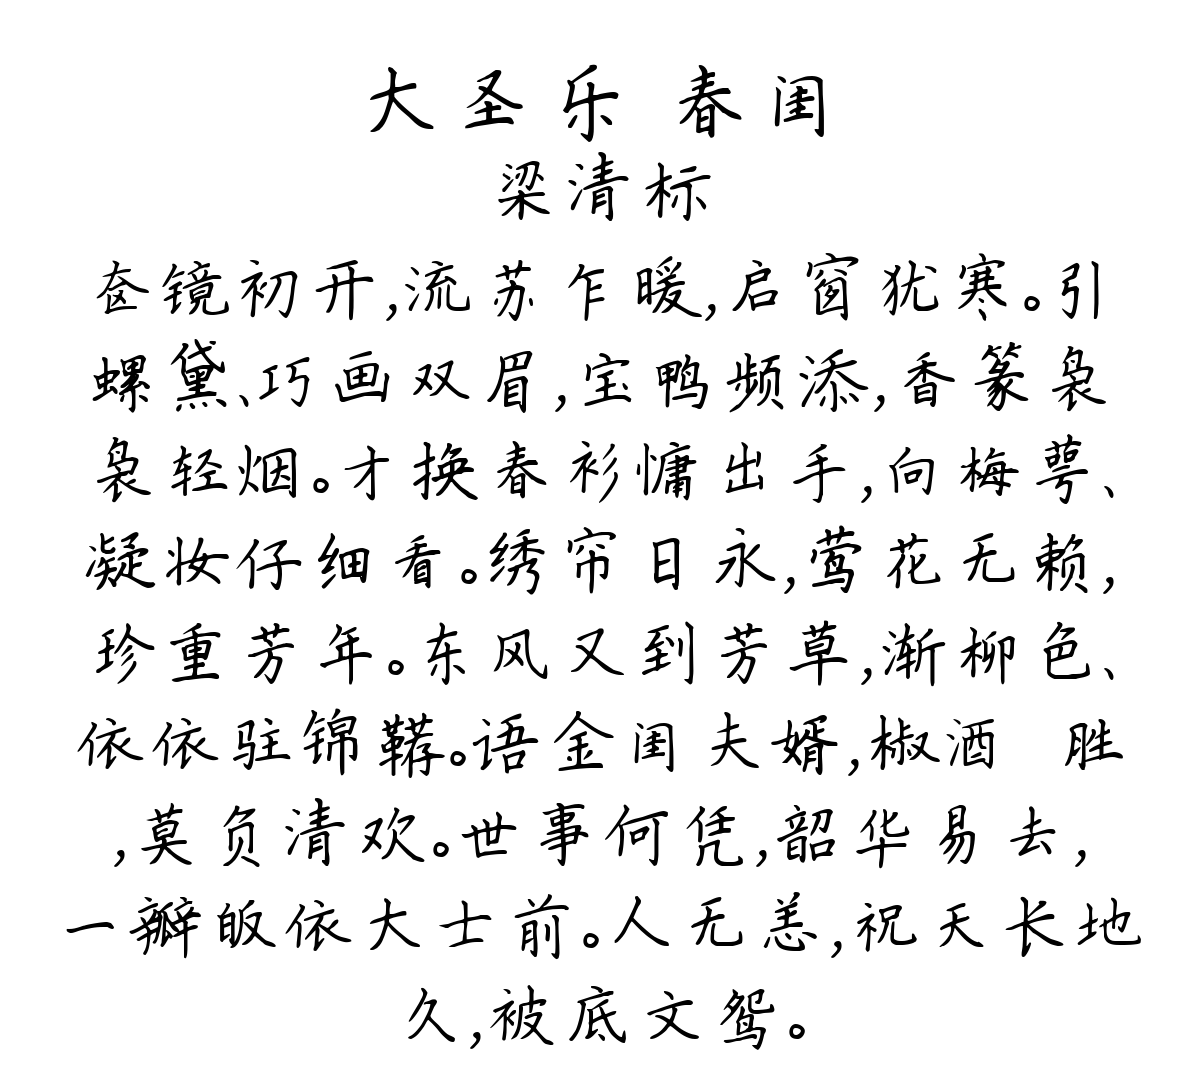 大圣乐 春闺
梁清标
奁镜初开,流苏乍暖,启窗犹寒。引
螺黛、巧画双眉,宝鸭频添,香篆袅
袅轻烟。才换春衫慵出手,向梅萼、
凝妆仔细看。绣帘日永,莺花无赖,
珍重芳年。东风又到芳草,渐柳色、
依依驻锦鞯。语金闺夫婿,椒酒 胜
,莫负清欢。世事何凭,韶华易去,
一瓣皈依大士前。人无恙,祝天长地
久,被底文鸳。